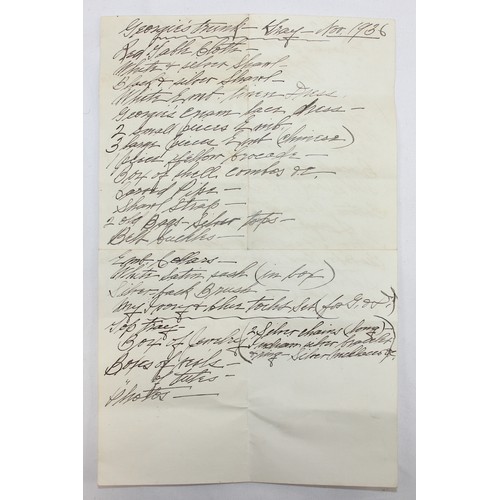 Georgie's Trunk - Tray - Nov 1936
Red Table Cloth -
White & silver Shawl
Black & silver Shawl
White Emb. Linen Dress
Georgie's cream lace dress -
2 small pieces Emb.
3 large pieces Emb (Chinese)
1 piece yellow brocade -
Box of shell combs &c. -
Carved Pipe -
Shawl Strap -
2 old Bags - Silver tops -
Belt buckles -
Emb. Collars -
White Satin sash (in box)
Silver-back Brush -
My ivory & blue toilet Set (for
Top tray -
Box of Jewelry (3 Silver chains long
Indian silver bracelet
ring - Silver necklaces &c.
Boxes of
" of
Photos -